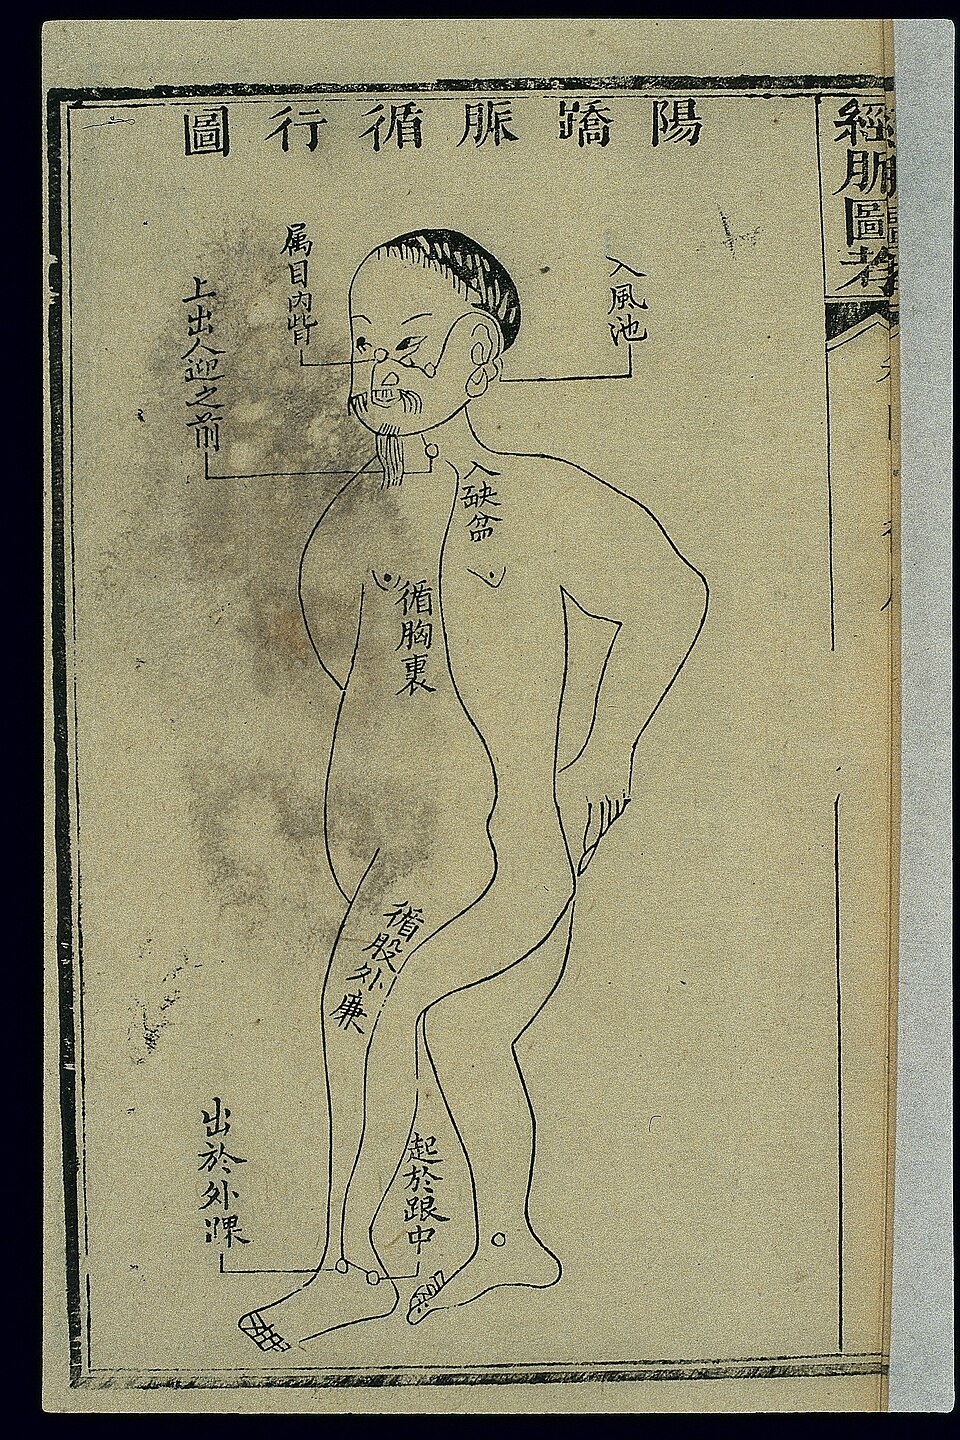 陽蹻脈循行圖
經脈圖考
入風池
属目內眥
上出人迎之前
入缺盆
循胸裏
循股外廉
起於跟中
出於外踝